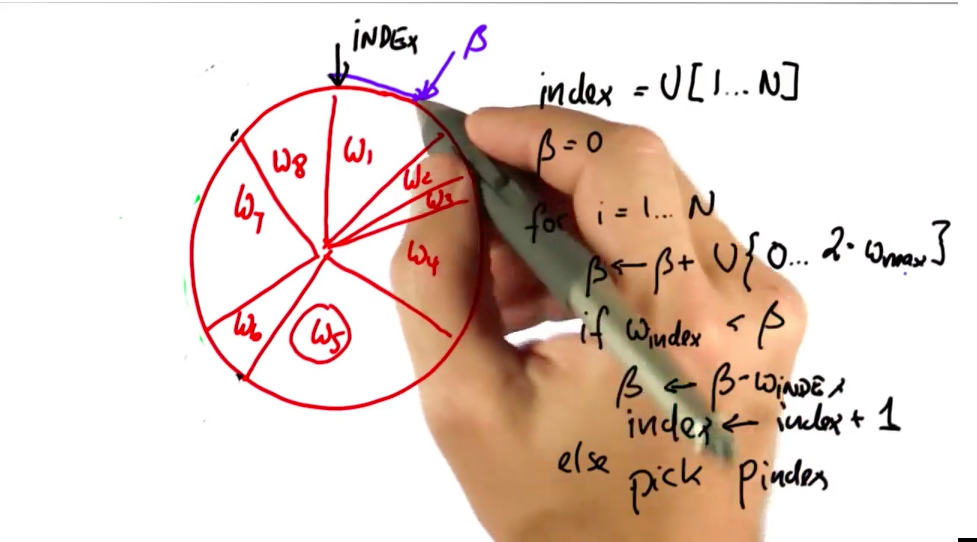 INDEX
β
ω8
ω1
ω2
ω3
ω7
ω4
ω6
ω5
index = U[1...N]
β = 0
for i = 1... N
β ← β + U{0... 2·ωmax]
if ωindex < β
β ← β - ωINDEX
index ← index + 1
else pick Pindex